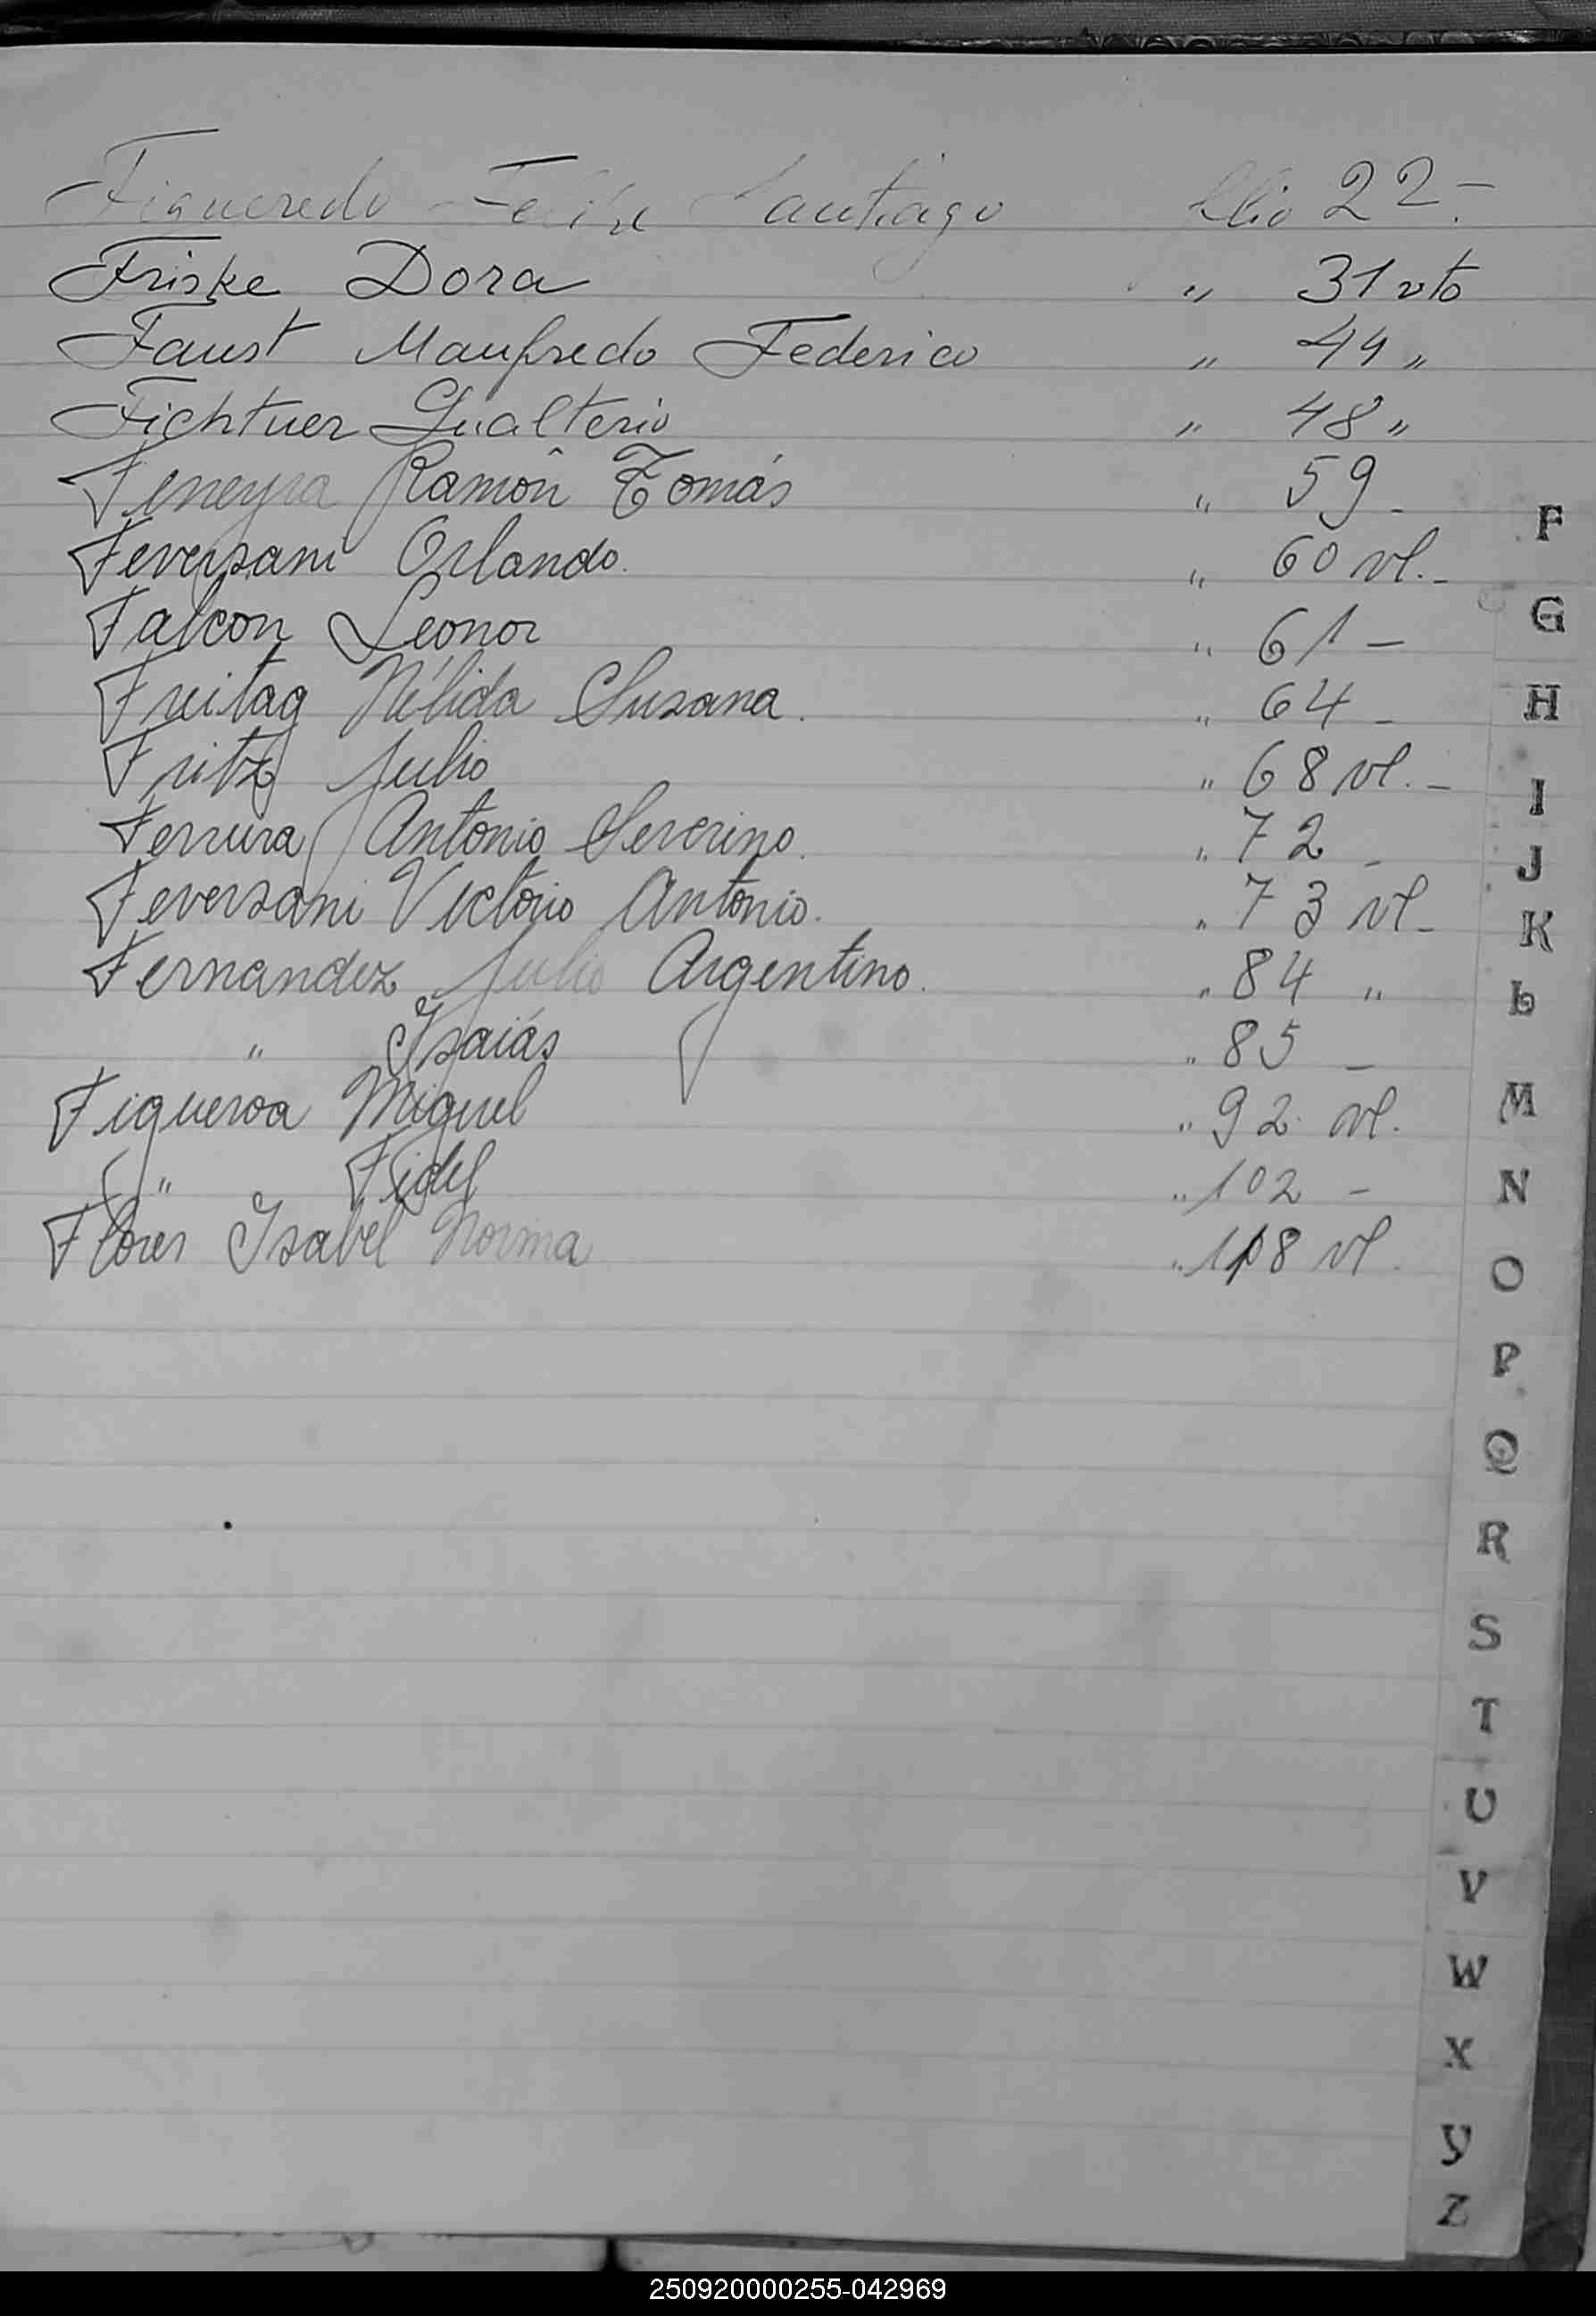 Figueredo Felipe Santiago folio 22.-
Friske Dora " 31 vto
Faust Manfredo Federico " 44 "
Fichtner Gualterio " 48 "
Feneyra Ramón Tomás " 59 -
Feversani Orlando. " 60 vl. -
Falcon Leonor " 61 -
Freitag Nélida Susana. " 64 -
Fritz Julio " 68 vl. -
Ferreira Antonio Severino. " 72 -
Feversani Victorio Antonio. " 73 vl -
Fernandez Julio Argentino. " 84 "
" Isaiás " 85 -
Figueroa Miguel " 92 vl.
" Fidel " 102 -
Flores Isabel Norma " 118 vl.
F
G
H
I
J
K
L
M
N
O
P
Q
R
S
T
U
V
W
X
Y
Z
250920000255-042969